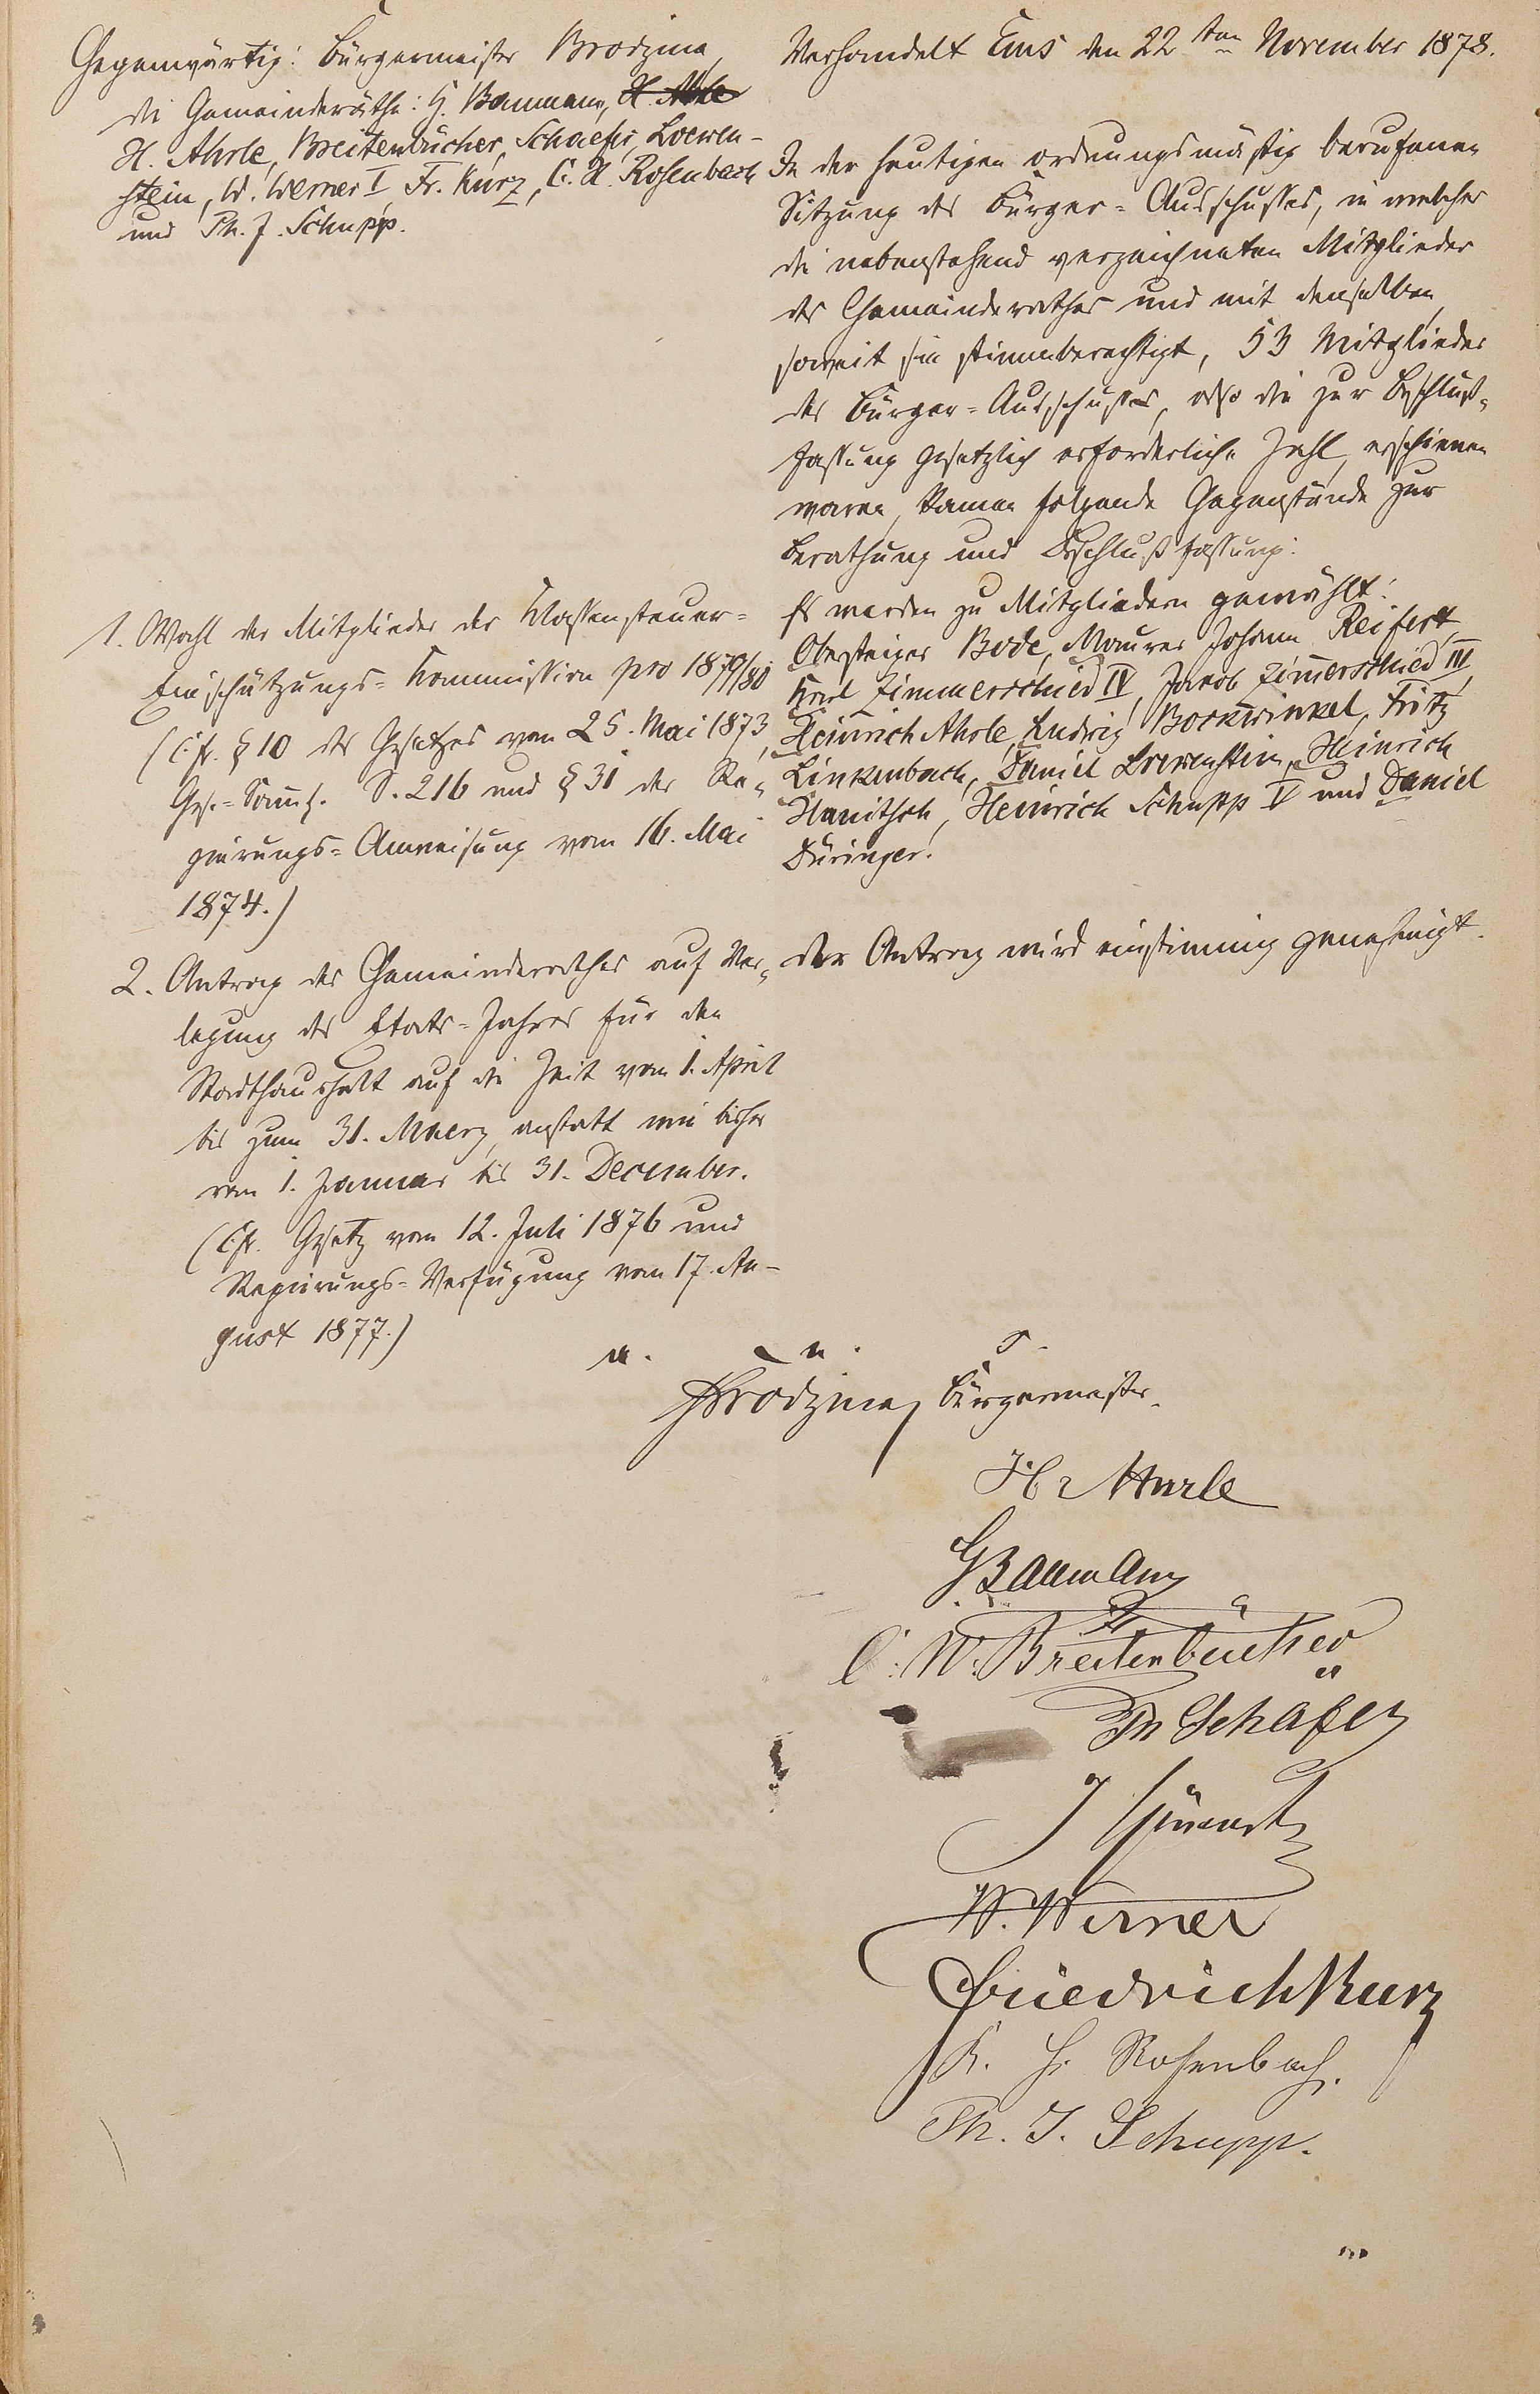 Gegenwärtig: Bürgermeister Brodzina,
die Gemeinderäthe: G. Baumann, H. Ahrle
H. Ahrle, Breitenbücher, Schaefer, Loewen-
stein, W. Werner I, Fr. Kurz, C. H. Rosenbach
und Ph. J. Schupp.
Verhandelt Ems den 22ten November 1878.
In der heutigen ordnungsmäßig berufenen
Sitzung des Bürger-Ausschusses, in welcher
die nebenstehend verzeichneten Mitglieder
des Gemeinderathes und mit denselben,
soweit sie stimmberechtigt, 53 Mitglieder
des Bürger-Ausschusses, also die zur Beschluß-
fassung gesetzlich erforderliche Zahl, erschienen
waren, kamen folgende Gegenstände zur
Berathung und Beschlußfassung:
1. Wahl der Mitglieder der Klassensteuer-
Einschätzungs-Kommission pro 1879/80
(Cfr. § 10 des Gesetzes vom 25. Mai 1873,
Ges.-Samml. S. 216 und § 31 der Re-
gierungs-Anweisung vom 16. Mai
1874.)
Es werden zu Mitgliedern gewählt:
Obersteiger Bode, Maurer Johann Reifert,
Karl Zimmerschied IV, Jacob Zimerschied III,
Heinrich Ahrle, Ludwig Bockwinkel, Fritz
Linkenbach, Daniel Loewenstein, Heinrich
Hanitsch, Heinrich Schupp V und Daniel
Düringer.
2. Antrag des Gemeinderathes auf Ver-
legung des Etats-Jahres für den
Stadthaushalt auf die Zeit vom 1. April
bis zum 31. Maerz, anstatt wie bisher
vom 1. Januar bis 31. December.
(Cfr. Gesetz vom 12. Juli 1876 und
Regierungs-Verfügung vom 17. Au-
gust 1877.)
der Antrag wird einstimmig genehmigt.
Brodzina, Bürgermeister.
Hr Ahrle
G Baumann
C. W. Breitenbücher
Ph Schäfer
W. Werner
Friedrich Kurz
K. H. Rosenbach.
Ph. J. Schupp.